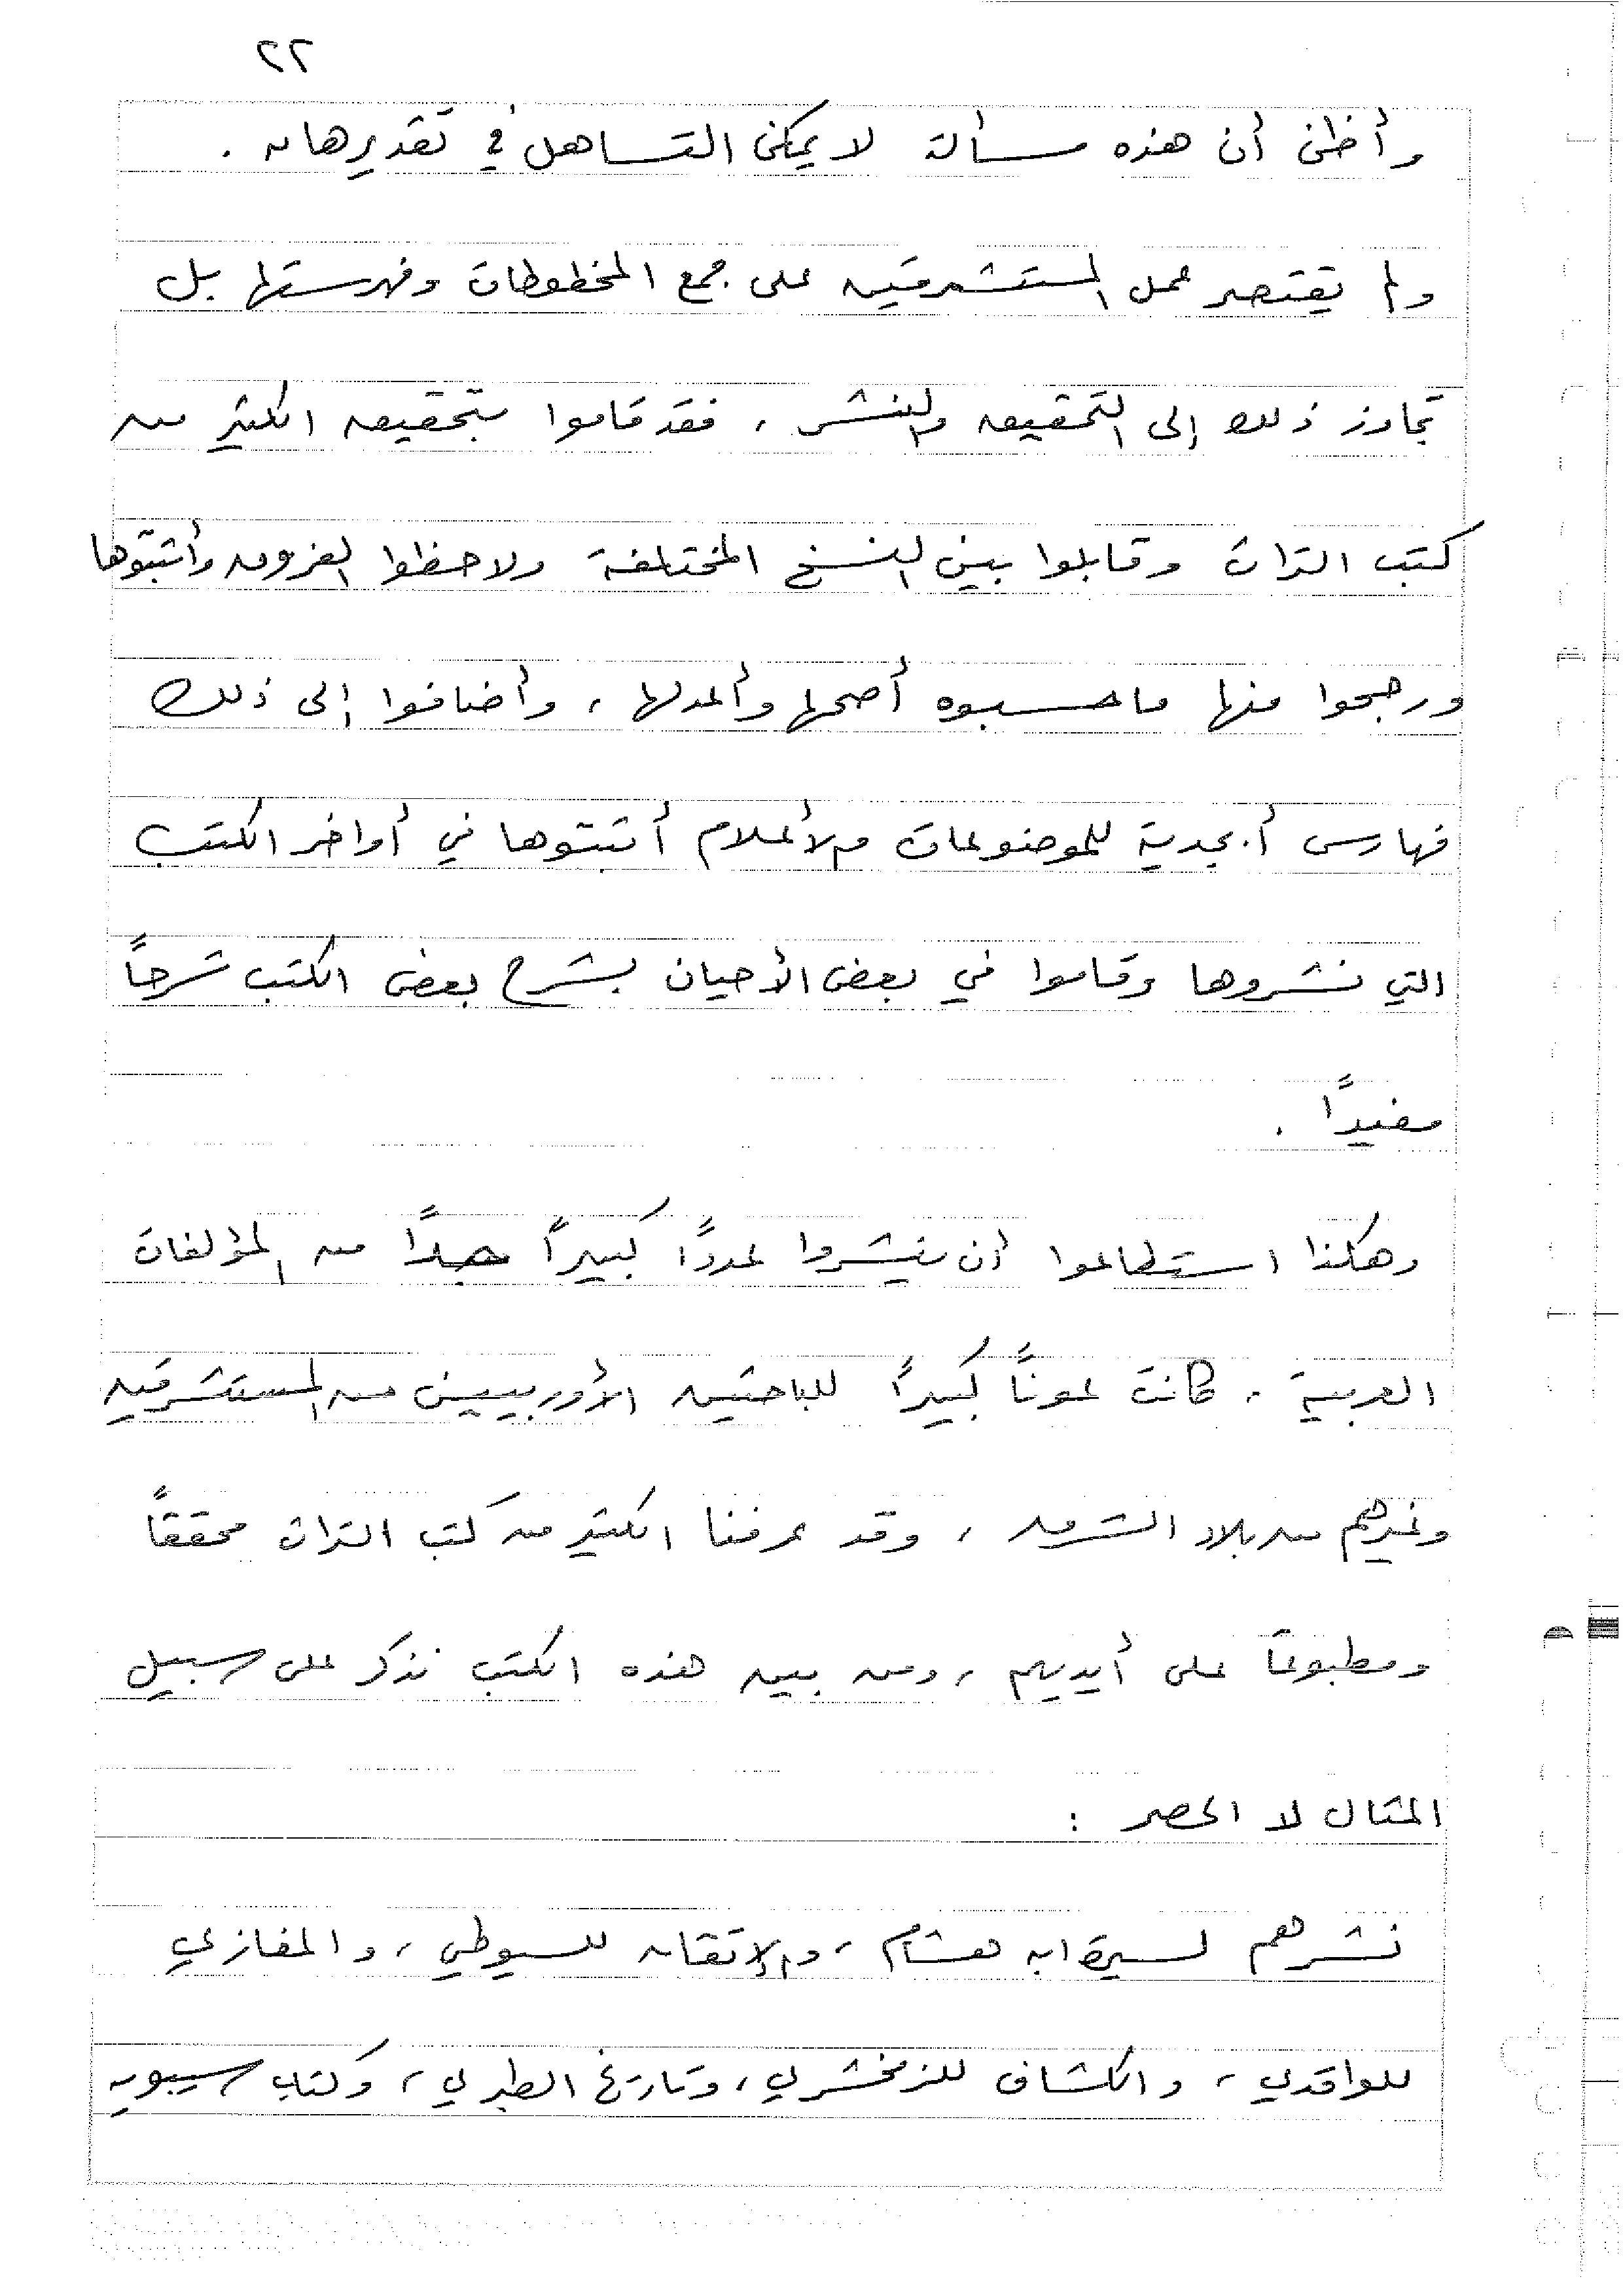 ٢٢
وأظن أن هذه مسألة لا يمكن التساهل في تقديرها .
ولم يقتصر عمل المستشرقين على جمع المخطوطات وفهرستها بل
تجاوز ذلك إلى التحقيق والنشر ، فقد قاموا بتحقيق الكثير من
كتب التراث وقابلوا بين النسخ المختلفة ولاحظوا الفروق وأثبتوها
ورجحوا منها ما حسبوه أصحها وأعدلها ، وأضافوا إلى ذلك
فهارس أبجدية للموضوعات والأعلام أثبتوها في أواخر الكتب
التي نشروها وقاموا في بعض الأحيان بشرح بعض الكتب شرحاً
مفيداً .
وهكذا استطاعوا أن ينشروا عدداً كبيراً جداً من المؤلفات
العربية ، كانت عوناً كبيراً للباحثين الأوربيين من المستشرقين
وغيرهم من بلاد الشرق ، وقد عرفنا الكثير من كتب التراث محققاً
ومطبوعاً على أيديهم ، ومن بين هذه الكتب نذكر على سبيل
المثال لا الحصر :
نشرهم لسيرة ابن هشام ، والإتقان للسيوطي ، والمغازي
للواقدي ، والكشاف للزمخشري ، وتاريخ الطبري ، وكتاب سيبويه